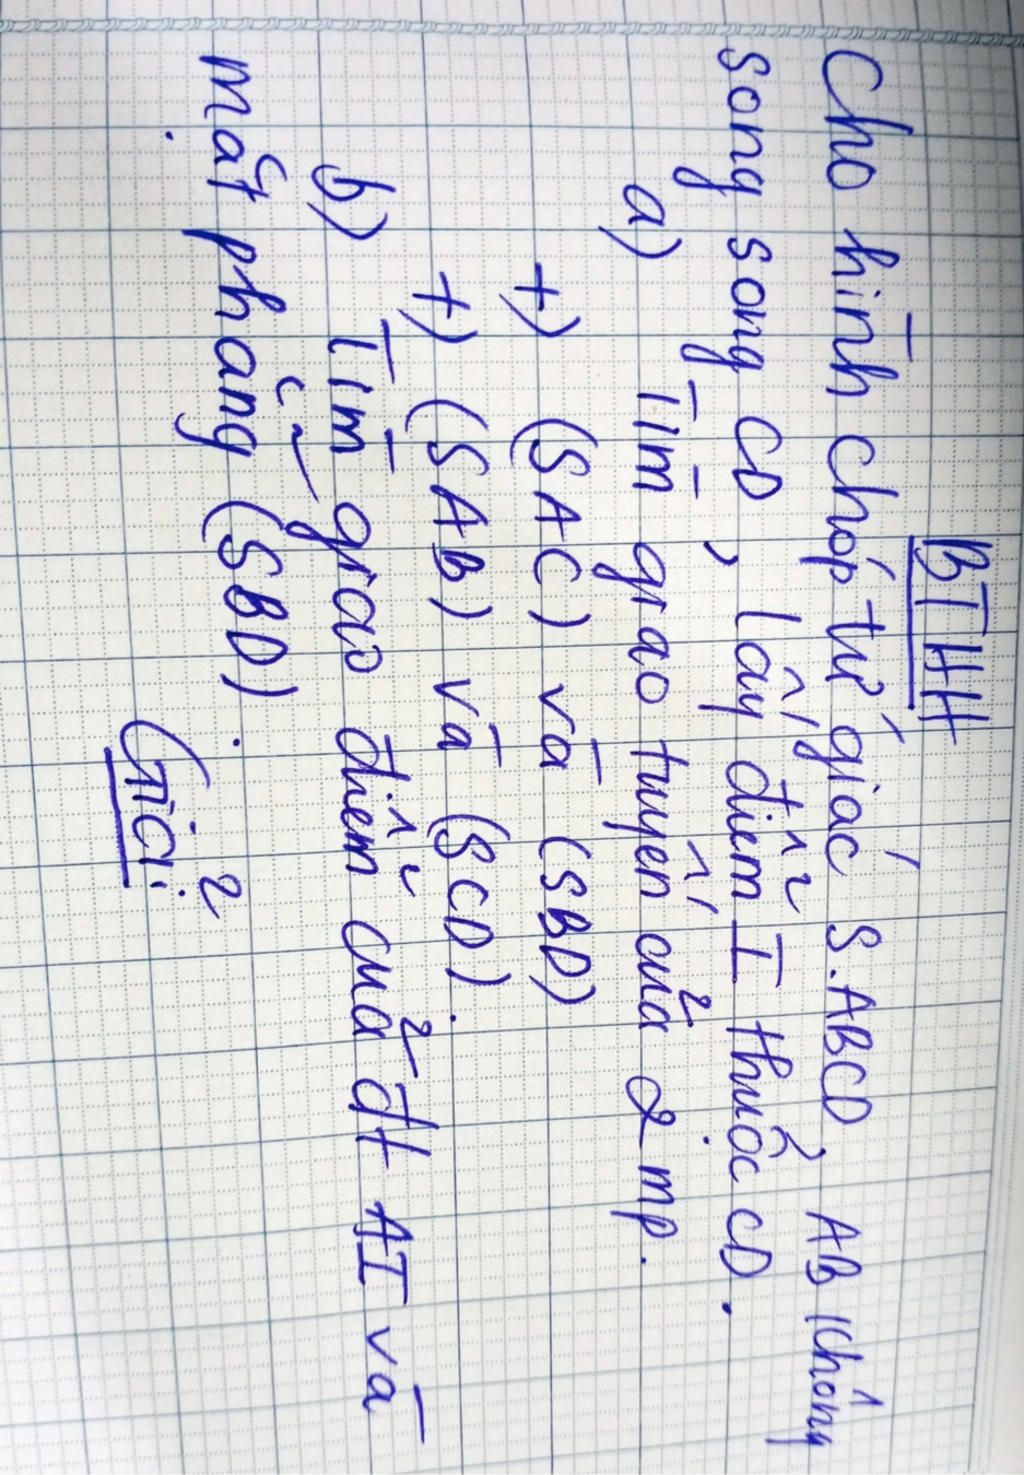 BTHH
Cho hình chóp tứ giác S.ABCD, AB không
song song CD, lấy điểm I thuộc CD.
a) Tìm giao tuyến của 2 mp.
+) (SAC) và (SBD)
+) (SAB) và (SCD).
b) Tìm giao điểm của đt AI và
mặt phẳng (SBD).
Giải